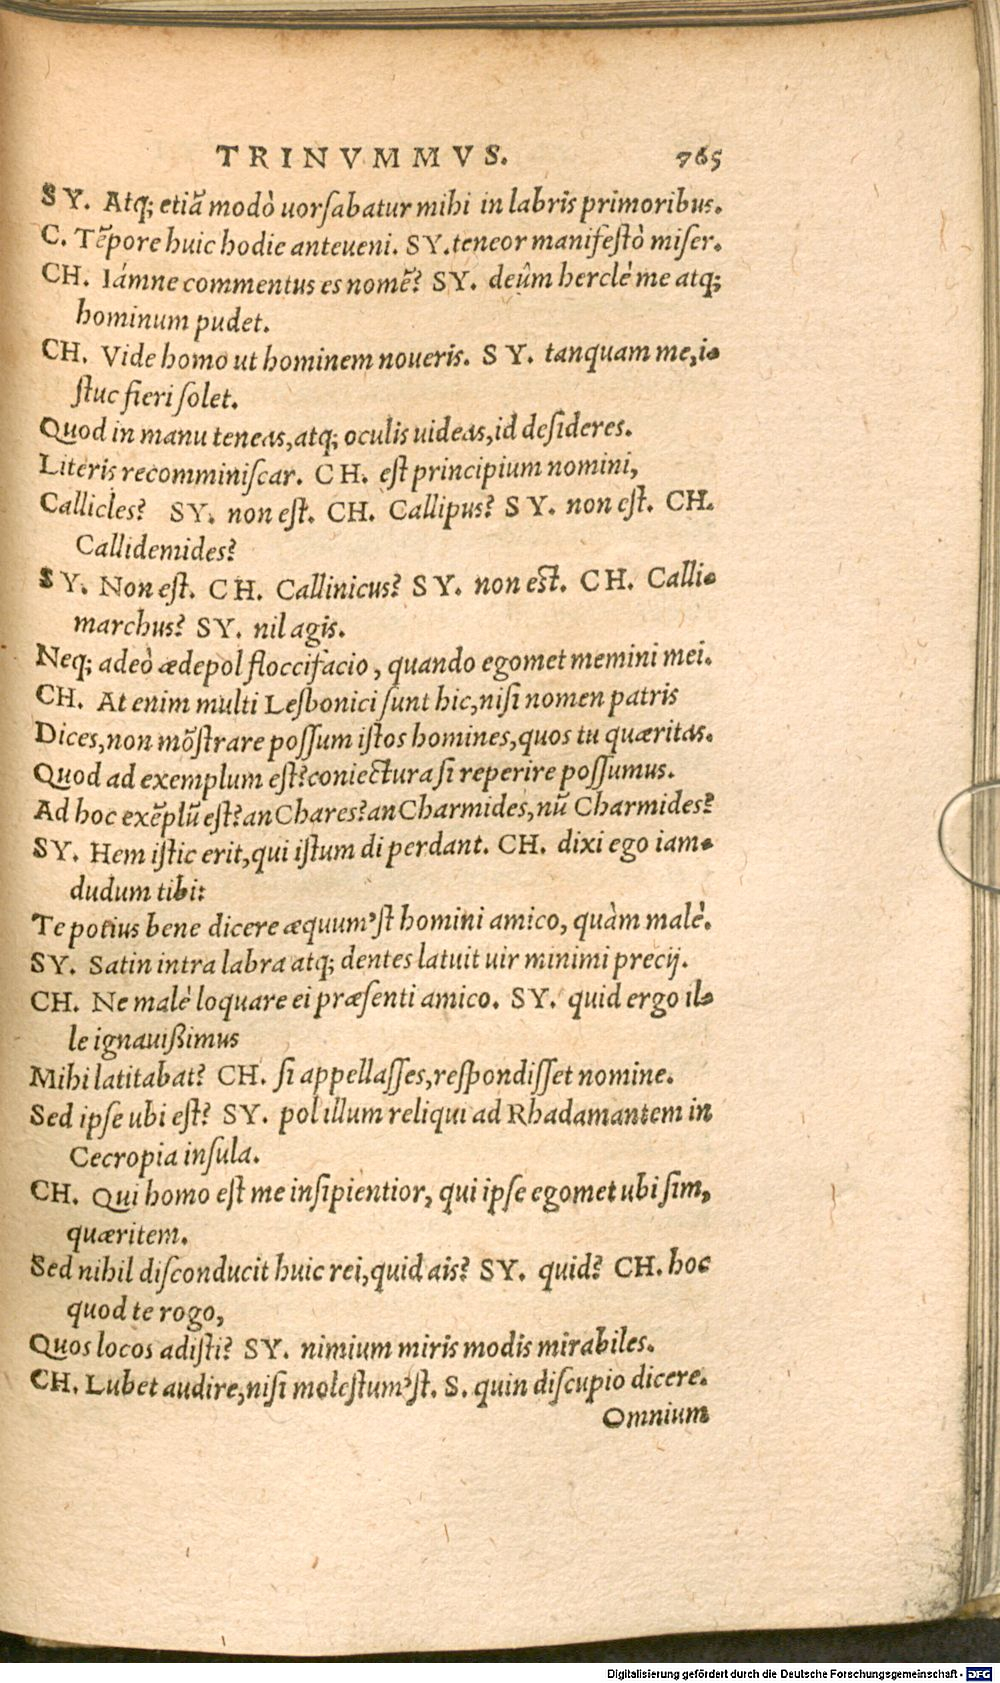 TRINVMMVS. 765
SY. Atq; etiã modò uorſabatur mihi in labris primoribus.
C. Tẽpore huic hodie anteueni. SY. teneor manifeſtò miſer.
CH. Iámne commentus es nomẽ? SY. deûm herclè me atq;
hominum pudet.
CH. Vide homo ut hominem noueris. SY. tanquam me, i-
ſtuc fieri ſolet.
Quod in manu teneas, atq; oculis uideas, id deſideres.
Literis recomminiſcar. CH. eſt principium nomini,
Callicles? SY. non eſt. CH. Callipus? SY. non eſt. CH.
Callidemides?
SY. Non eſt. CH. Callinicus? SY. non est. CH. Calli-
marchus? SY. nil agis.
Neq; adeò ædepol floccifacio, quando egomet memini mei.
CH. At enim multi Lesbonici ſunt hic, niſi nomen patris
Dices, non mõſtrare poſſum iſtos homines, quos tu quæritas.
Quod ad exemplum eſt? coniectura ſi reperire poſſumus.
Ad hoc exẽplũ eſt? an Chares? an Charmides, nũ Charmides?
SY. Hem iſtic erit, qui iſtum di perdant. CH. dixi ego iam-
dudum tibi:
Te potius bene dicere æquum'ſt homini amico, quàm malè.
SY. Satin intra labra atq; dentes latuit uir minimi precij.
CH. Ne malè loquare ei præſenti amico. SY. quid ergo il-
le ignauißimus
Mihi latitabat? CH. ſi appellaſſes, reſpondiſſet nomine.
Sed ipſe ubi eſt? SY. pol illum reliqui ad Rhadamantem in
Cecropia inſula.
CH. Qui homo eſt me inſipientior, qui ipſe egomet ubi ſim,
quæritem.
Sed nihil diſconducit huic rei, quid ais? SY. quid? CH. hoc
quod te rogo,
Quos locos adiſti? SY. nimium miris modis mirabiles.
CH. Lubet audire, niſi moleſtum'ſt. S. quin diſcupio dicere.
Omnium
Digitalisierung gefördert durch die Deutsche Forschungsgemeinschaft - DFG